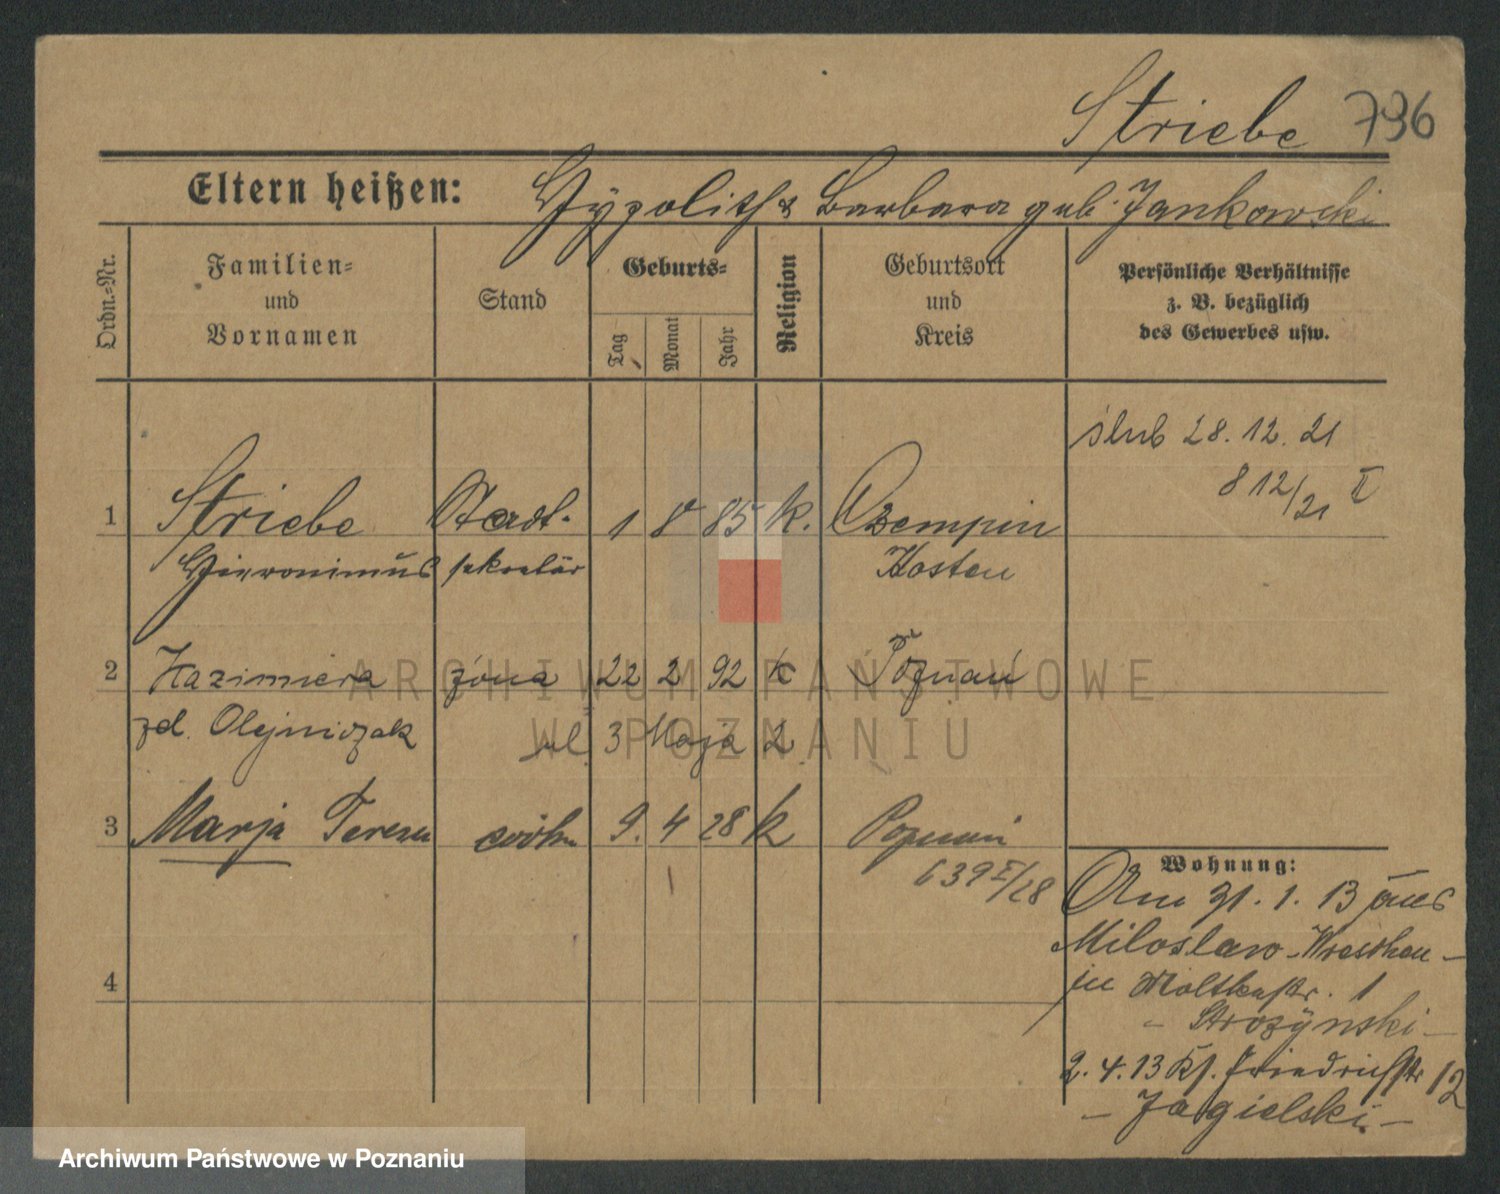 Striebe 796
Eltern heißen: Hypolith & Barbara geb. Jankowski
Ordn.-Nr.
Familien-
und
Vornamen
Stand
Geburts-
Tag
Monat
Jahr
Religion
Geburtsort
und
Kreis
Persönliche Verhältnisse
z. B. bezüglich
des Gewerbes usw.
ślub 28. 12. 21
812/21 II
1 Striebe Stadt- 1 8 85 k. Czempin
Hieronimus sekretär Kosten
2 Kazimiera żona 22 2 92 k Poznań
zd. Olejniczak ul 3 Maja 2
3 Marja Teresa córka 9. 4 28 k Poznań
639 I/28
4
Wohnung:
Am 31. 1. 13 aus
Miloslaw - Wreschen -
in Moltkestr. 1
- Strozynski -
2. 4. 13 Kf. Friedrichstr 12
- Jagielski -
ARCHIWUM PAŃSTWOWE
W POZNANIU
Archiwum Państwowe w Poznaniu